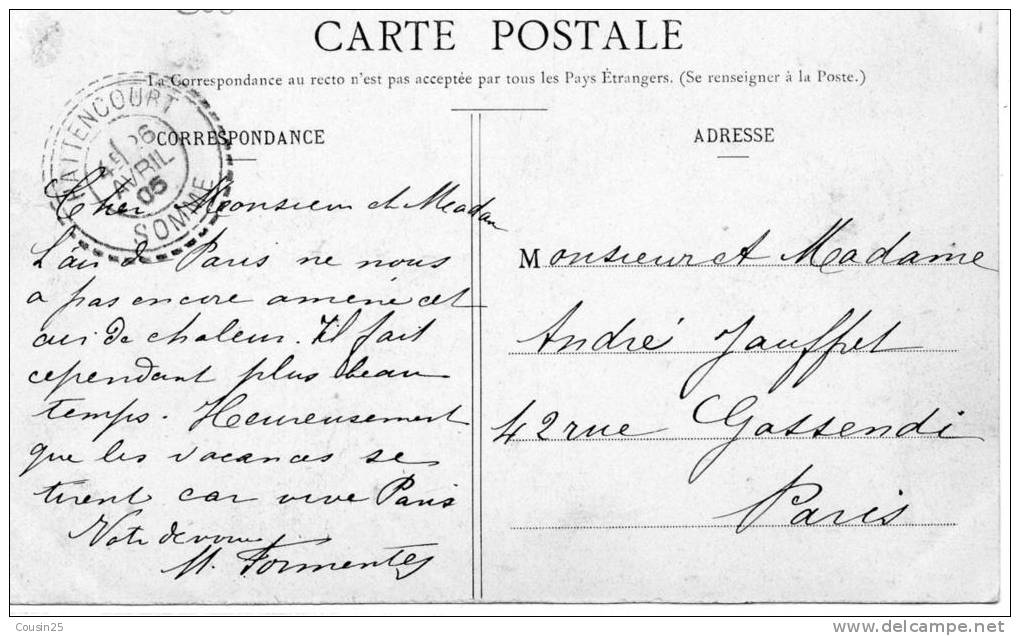 CARTE POSTALE
La Correspondance au recto n'est pas acceptée par tous les Pays Étrangers. (Se renseigner à la Poste.)
CORRESPONDANCE
ADRESSE
HATTENCOURT
26
AVRIL
05
SOMME
Cher Monsieur et Madam
L'air de Paris ne nous
a pas encore amené cet
air de chaleur. Il fait
cependant plus beau
temps. Heureusement
que les vacances se
tirent car vive Paris
Votre dévoué
M. Formentes
Monsieur et Madame
André Jauffret
42 rue Gassendi
Paris
Cousin25
www.delcampe.net